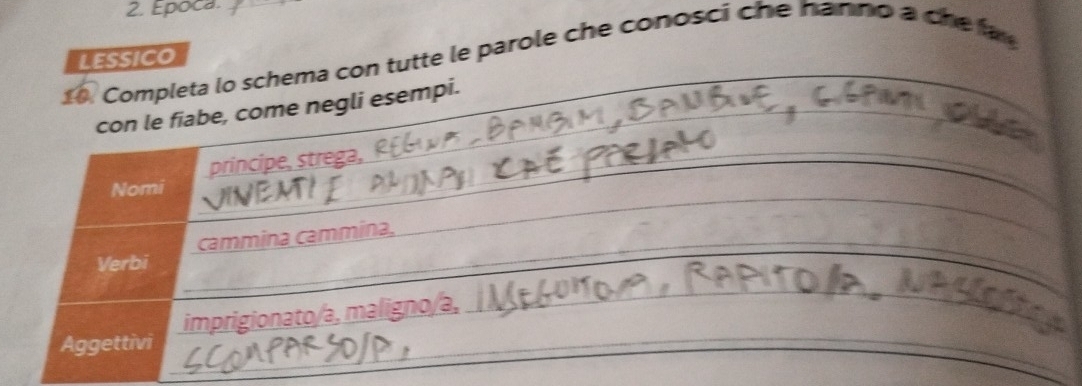 2. Epoca.
LESSICO
10. Completa lo schema con tutte le parole che conosci che hanno a che fare
con le fiabe, come negli esempi.
Nomi
principe, strega, REGINA, BAMBINI, BAMBINE, GIGANTI, OGGETTI
VIVENTI E ANIMALI CHE PARLANO
Verbi
cammina cammina,
Aggettivi
imprigionato/a, maligno/a, INSEGUITO/A, RAPITO/A,
SCOMPARSO/A,